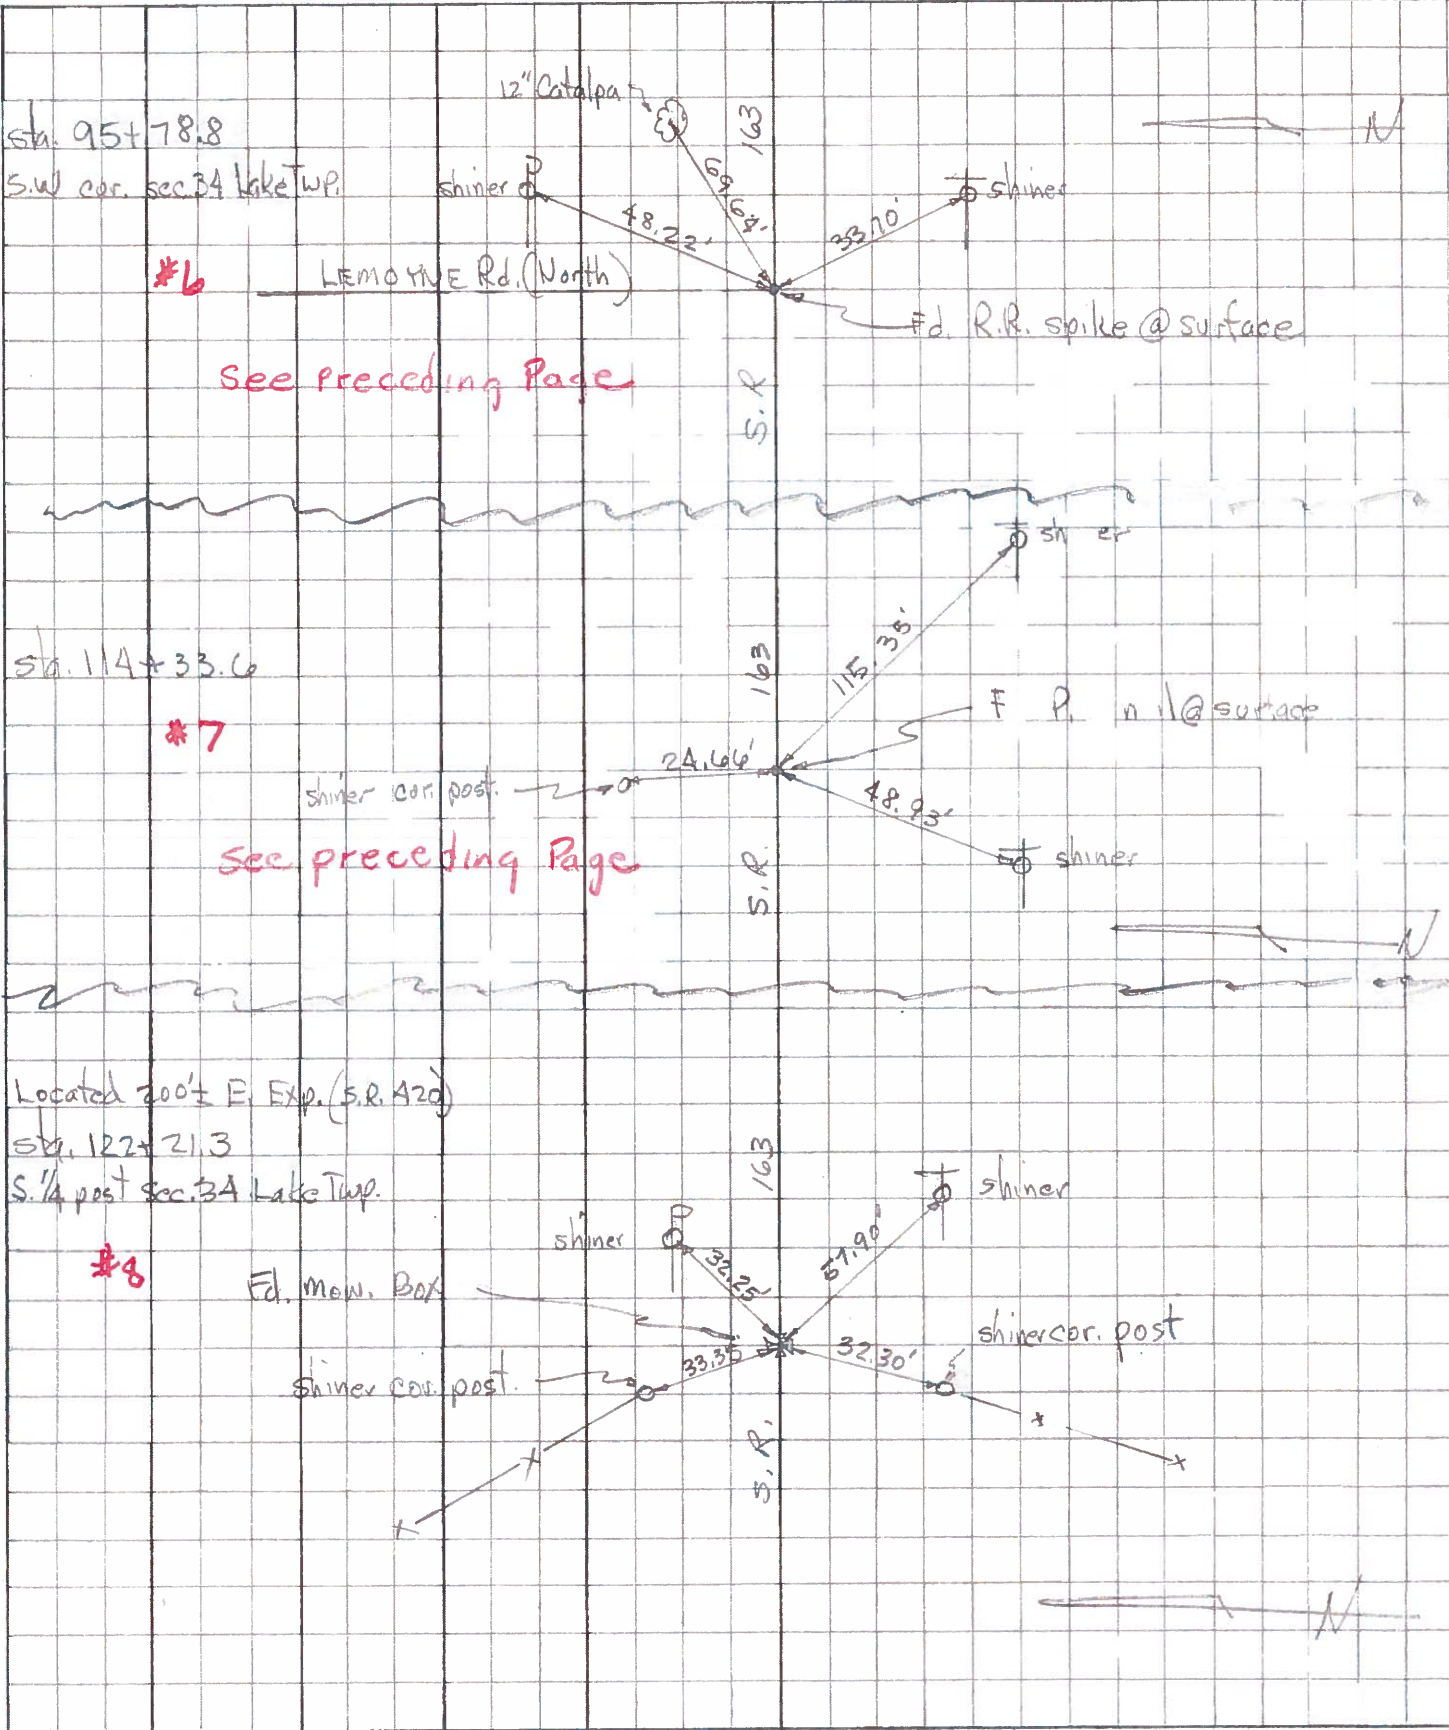 12" Catalpa
sta. 95+78.8
S.W cor. sec.34 Lake Twp.
shiner
P
163
N
shiner
48.22'
69.68'
33.70'
#6
LEMOYNE Rd. (North)
Fd. R.R. spike @ surface
See preceding Page
S.R
sh er
115.35'
sta. 114+33.6
163
#7
F P. n l@ surface
24.66'
shiner cor. post.
48.93'
See preceding Page
S.R.
shiner
N
Located 200'± E. Exp. (S.R. 420)
sta. 122+21.3
S. 1/4 post Sec.34 Lake Twp.
163
shiner
shiner
P
#8
32.25'
57.90'
Fd. Mow. Box
shiner cor. post
33.35
32.30'
shiner cor. post.
S.R.
N